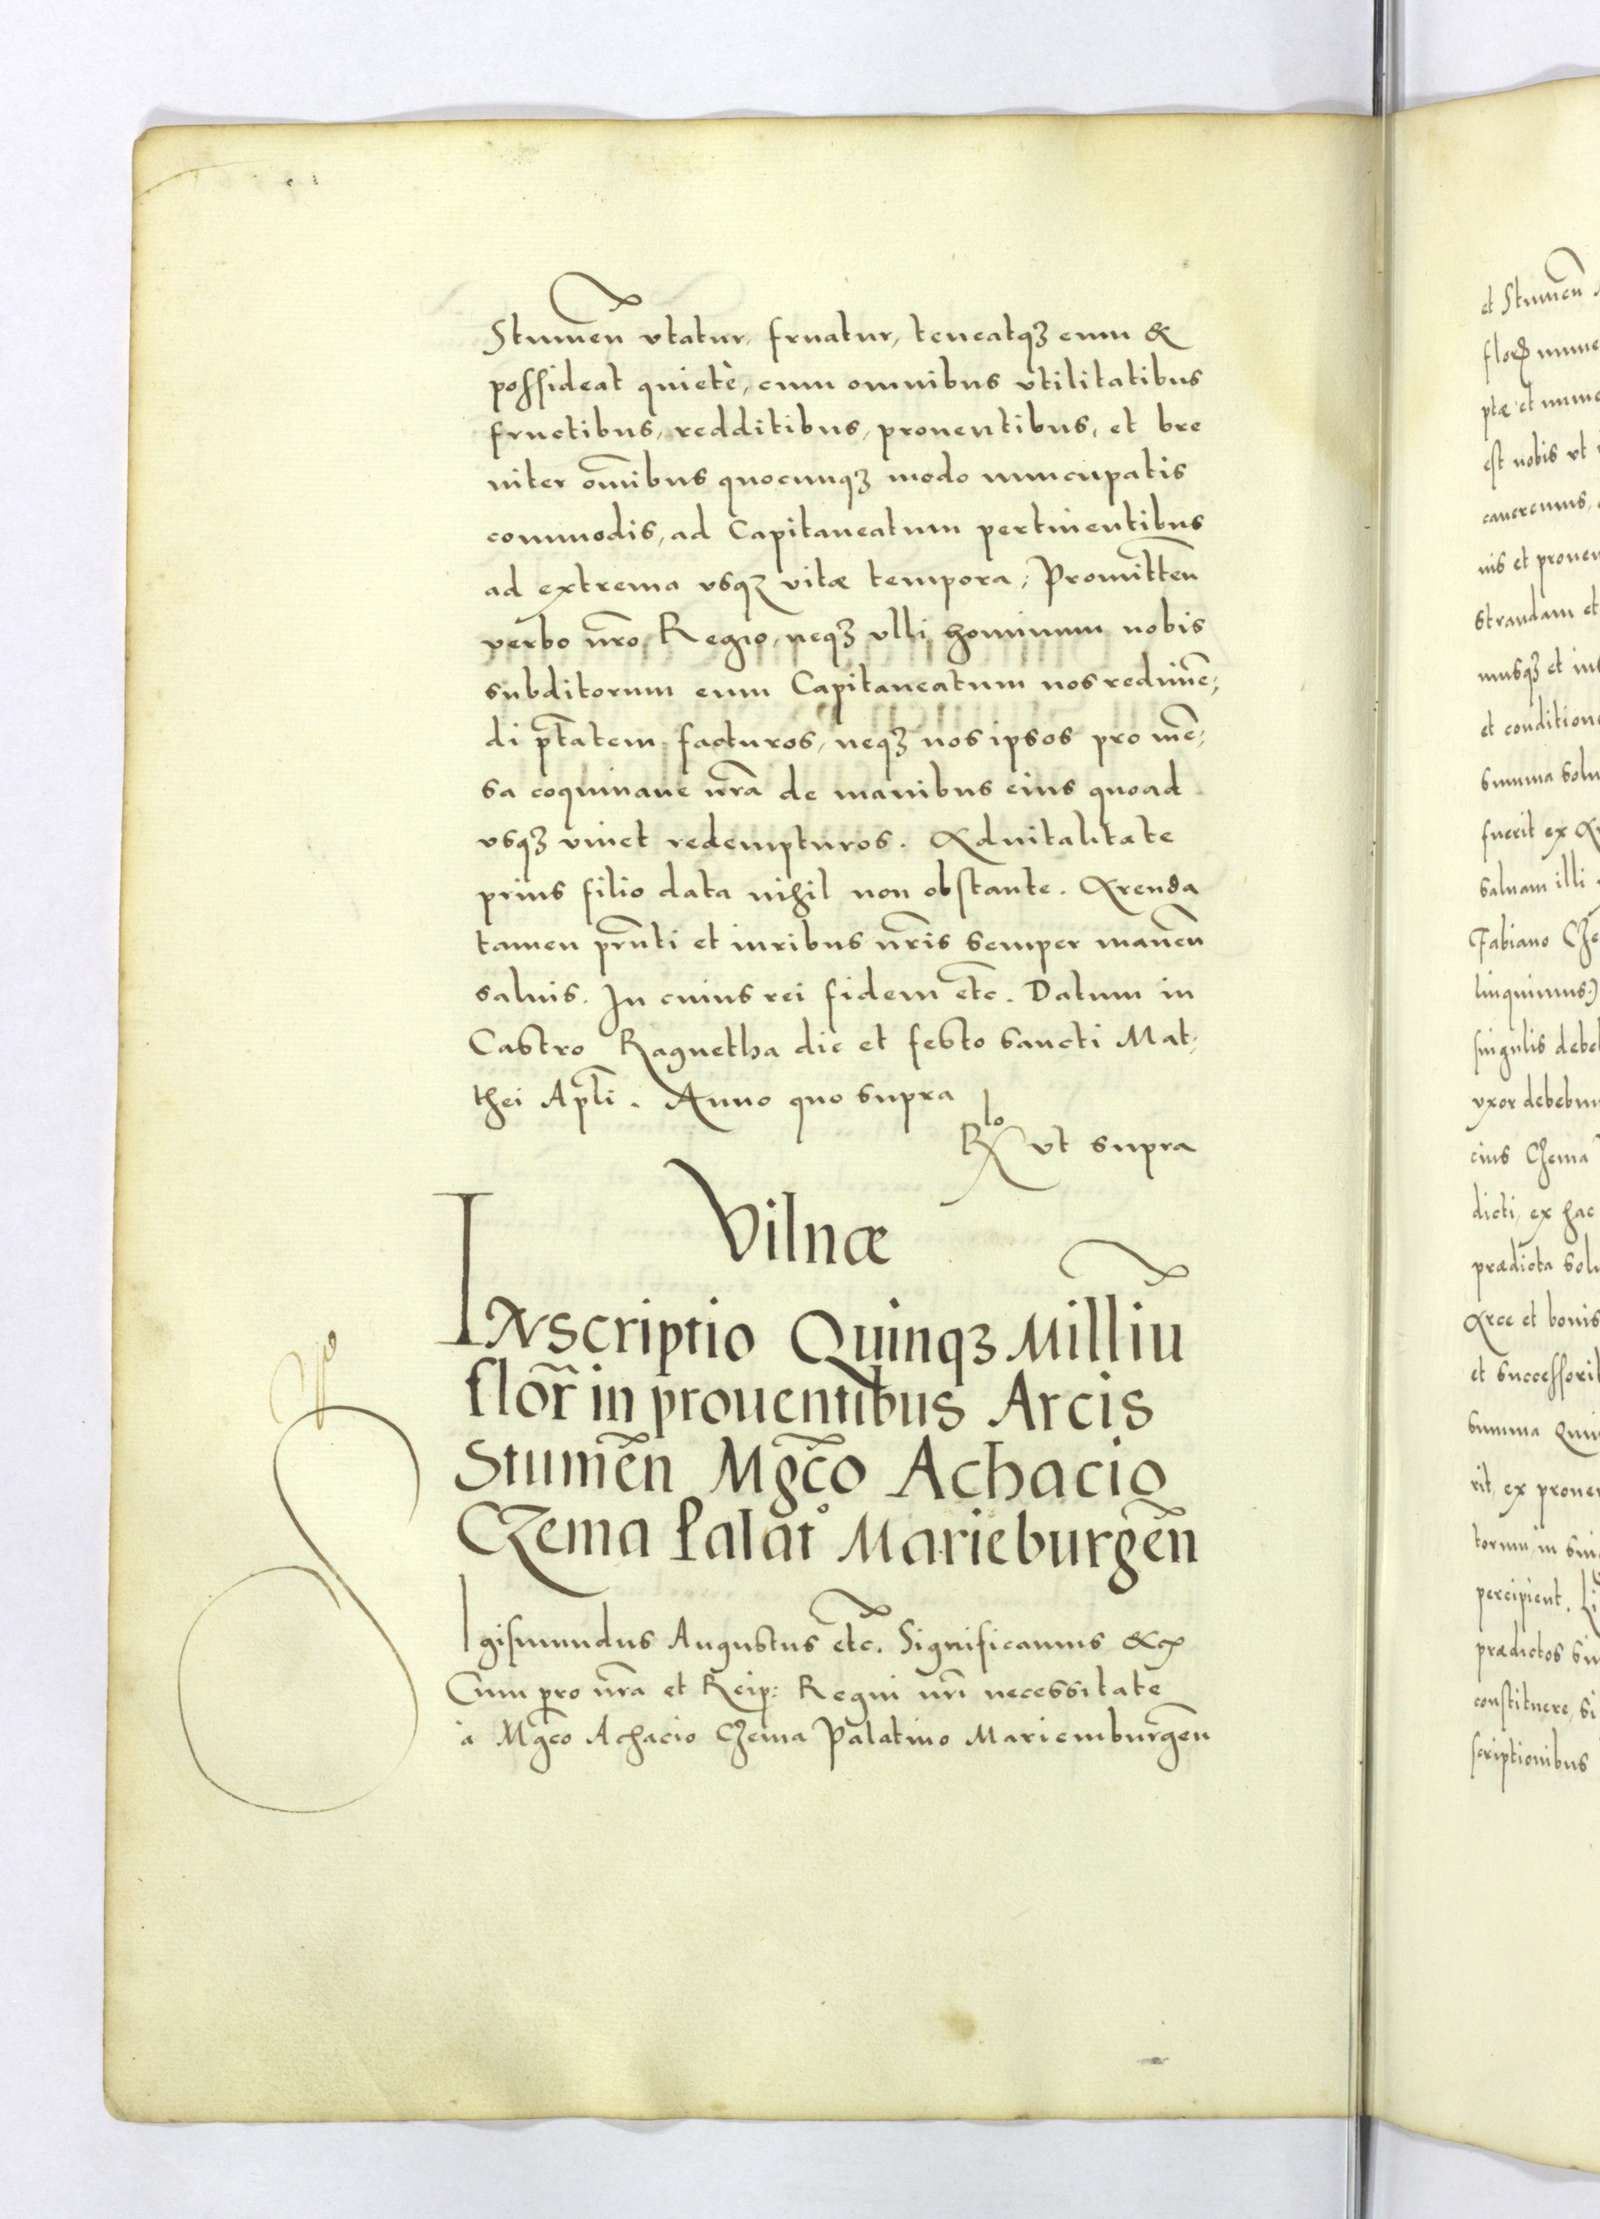 Stumen̄ vtatur, fruatur, teneatqꝫ eum &
possideat quietè, cum omnibus vtilitatibus
fructibus, redditibus, prouentibus, et bre
uiter om̄ibus quocunqꝫ modo nuncupatis
commodis, ad Capitaneatum pertinentibus
ad extrema vsqꝫ vitæ tempora, Promitten̄
verbo nr̄o Regio, neqꝫ vlli hominum nobis
subditorum eum Capitaneatum nos redimē,
di pt̄atem facturos, neqꝫ nos ipsos pro mē,
sa coquinaue nr̄a de manibus eius quoad
vsqꝫ viuet redempturos. Aduitalitate
prius filio data nihil non obstante. Arenda
tamen prn̄ti et iuribus nr̄is semper manen̄
saluis. In cuius rei fidem etc̄. Datum in
Castro Ragnetha die et festo sancti Mat,
thei Apl̄i. Anno quo supra
Rlo vt supra
Vilnæ
Inscriptio Quinqꝫ Milliū
flor̄ in prouentibus Arcis
Stumen̄ Mgc̄o Achacio
Czema Palat° Marieburgen̄
Sigismundus Augustus etc̄. Significamus &c
Cum pro nr̄a et Reip: Regni nr̄i necessitate
à Mgc̄o Achacio Czema Palatino Mariemburgen̄
et Stumen̄
flor̄ nume
ptæ et nume
est nobis vt
caueremus,
nis et prouen
strandam et
musqꝫ et in
et conditione
summa solu
fuerit ex Ar
saluam illi
Fabiano Cze
linquimus)
singulis debe
vxor debebun
cius Czema
dicti, ex hac
prædicta solu
Arce et bonis
et successorib
summa Quin
rit, ex proue
torum, in sin
percipient. Li
prædictos su
constituere, si
scriptionibus